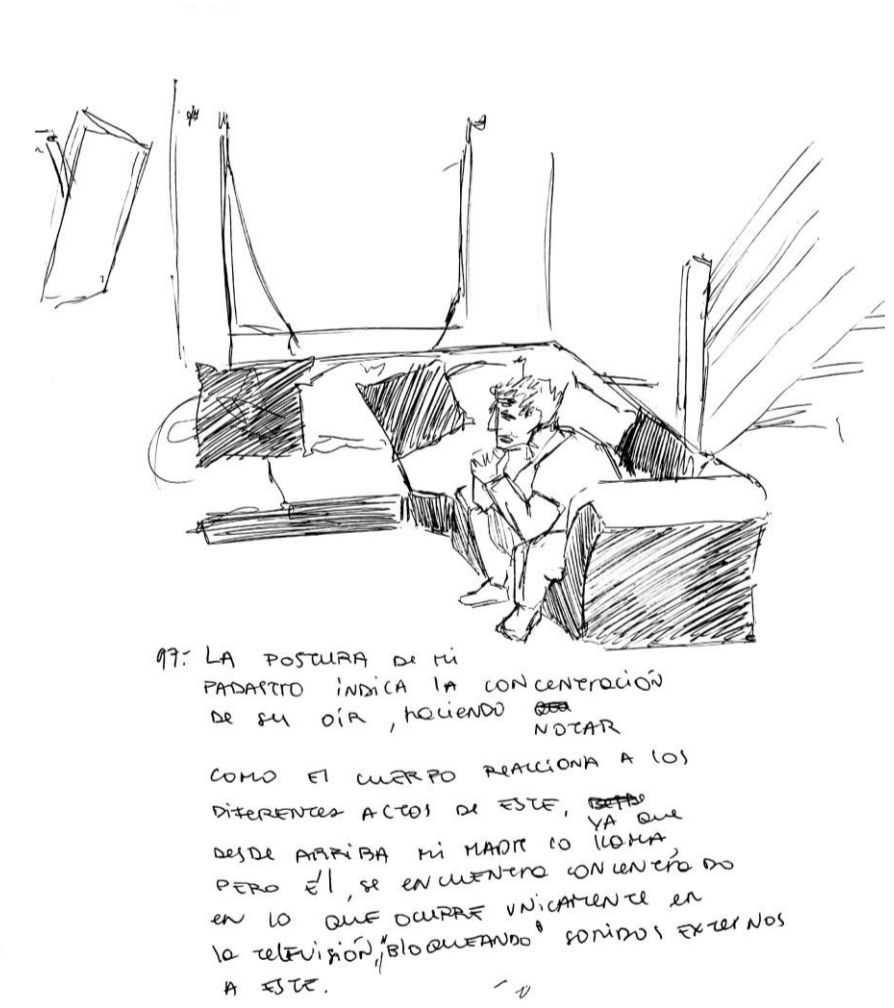 97:- LA POSTURA DE MI
PADASTRO INDICA LA CONCENTRACIÓN
DE SU OÍR, HACIENDO
NOTAR
COMO EL CUERPO REACCIONA A LOS
DIFERENTES ACTOS DE ESTE,
YA QUE
DESDE ARRIBA MI MADRE LO LLAMA,
PERO ÉL, SE ENCUENTRA CONCENTRADO
EN LO QUE OCURRE UNICAMENTE EN
LA TELEVISIÓN, "BLOQUEANDO" SONIDOS EXTERNOS
A ESTE.